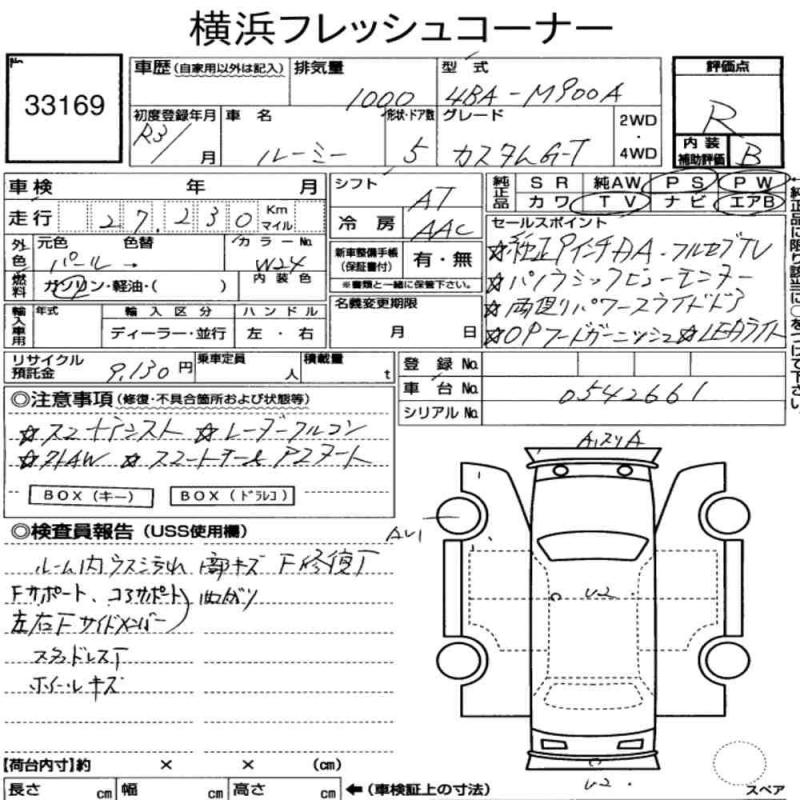 横浜フレッシュコーナー
33169
車歴 (自家用以外は記入) 排気量 1000 型式 4BA-M900A 評価点 R
初度登録年月 R3/ 月 車名 ルーミー 形状・ドア数 5 グレード カスタムG-T 2WD・4WD 内装補助評価 B
車検 年 月 シフト AT 純正品 SR 純AW PS PW
カワ TV ナビ エアB
走行 27,230 Km マイル 冷房 AAC セールスポイント
外色 元色 パール 色替 カラーNo. W24 新車整備手帳 (保証書付) 有・無
☆純正9インチDA・フルセグTV
燃料 ガソリン・軽油・( ) 内装色 ※書類と一緒に保管下さい。
☆パノラミックビューモニター
輸入車用 年式 輸入区分 ハンドル 名義変更期限
☆両側パワースライドドア
ディーラー・並行 左・右 月 日
☆OPフードガーニッシュ☆LEDライト
←純正品に限り該当に○をつけて下さい。
リサイクル預託金 9,130円 乗車定員 人 積載量 t 登録No.
車台No. 0542661
シリアルNo.
◎注意事項 (修復・不具合箇所および状態等)
☆スマートアシスト ☆レーダークルコン
☆スマートキー&Pスタート
BOX(キー) BOX(ドラレコ)
◎検査員報告 (USS使用欄)
ルーム内ウスヨゴレ キズ F修復
Fサポート、コアサポート
左右Fサイドメンバー
曲ガリ
スタッドレスT
ホイールキズ
U-2
U-2
【荷台内寸】約 × × (cm)
長さ cm 幅 cm 高さ cm ←(車検証上の寸法)
スペア